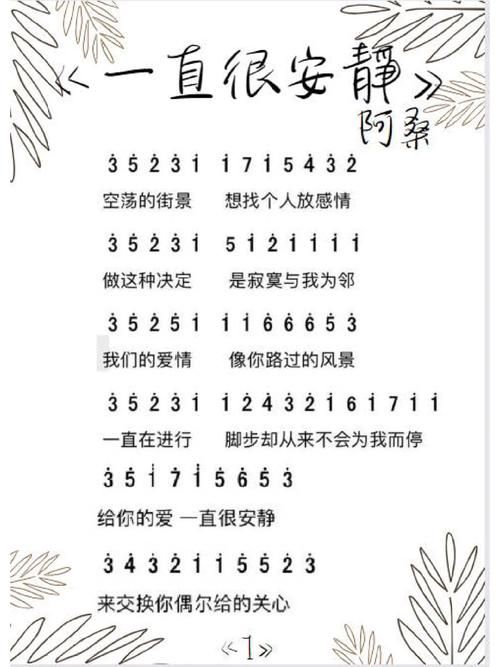 《一直很安靜》
阿桑
3 5 2 3 1 1 7 1 5 4 3 2
空荡的街景 想找个人放感情
3 5 2 3 1 5 1 2 1 1 1 1
做这种决定 是寂寞与我为邻
3 5 2 5 1 1 1 6 6 6 5 3
我们的爱情 像你路过的风景
3 5 2 3 1 1 2 4 3 2 1 6 1 7 1 1
一直在进行 脚步却从来不会为我而停
3 5 1 7 1 5 6 5 3
给你的爱 一直很安静
3 4 3 2 1 1 5 5 2 3
来交换你偶尔给的关心
《1》